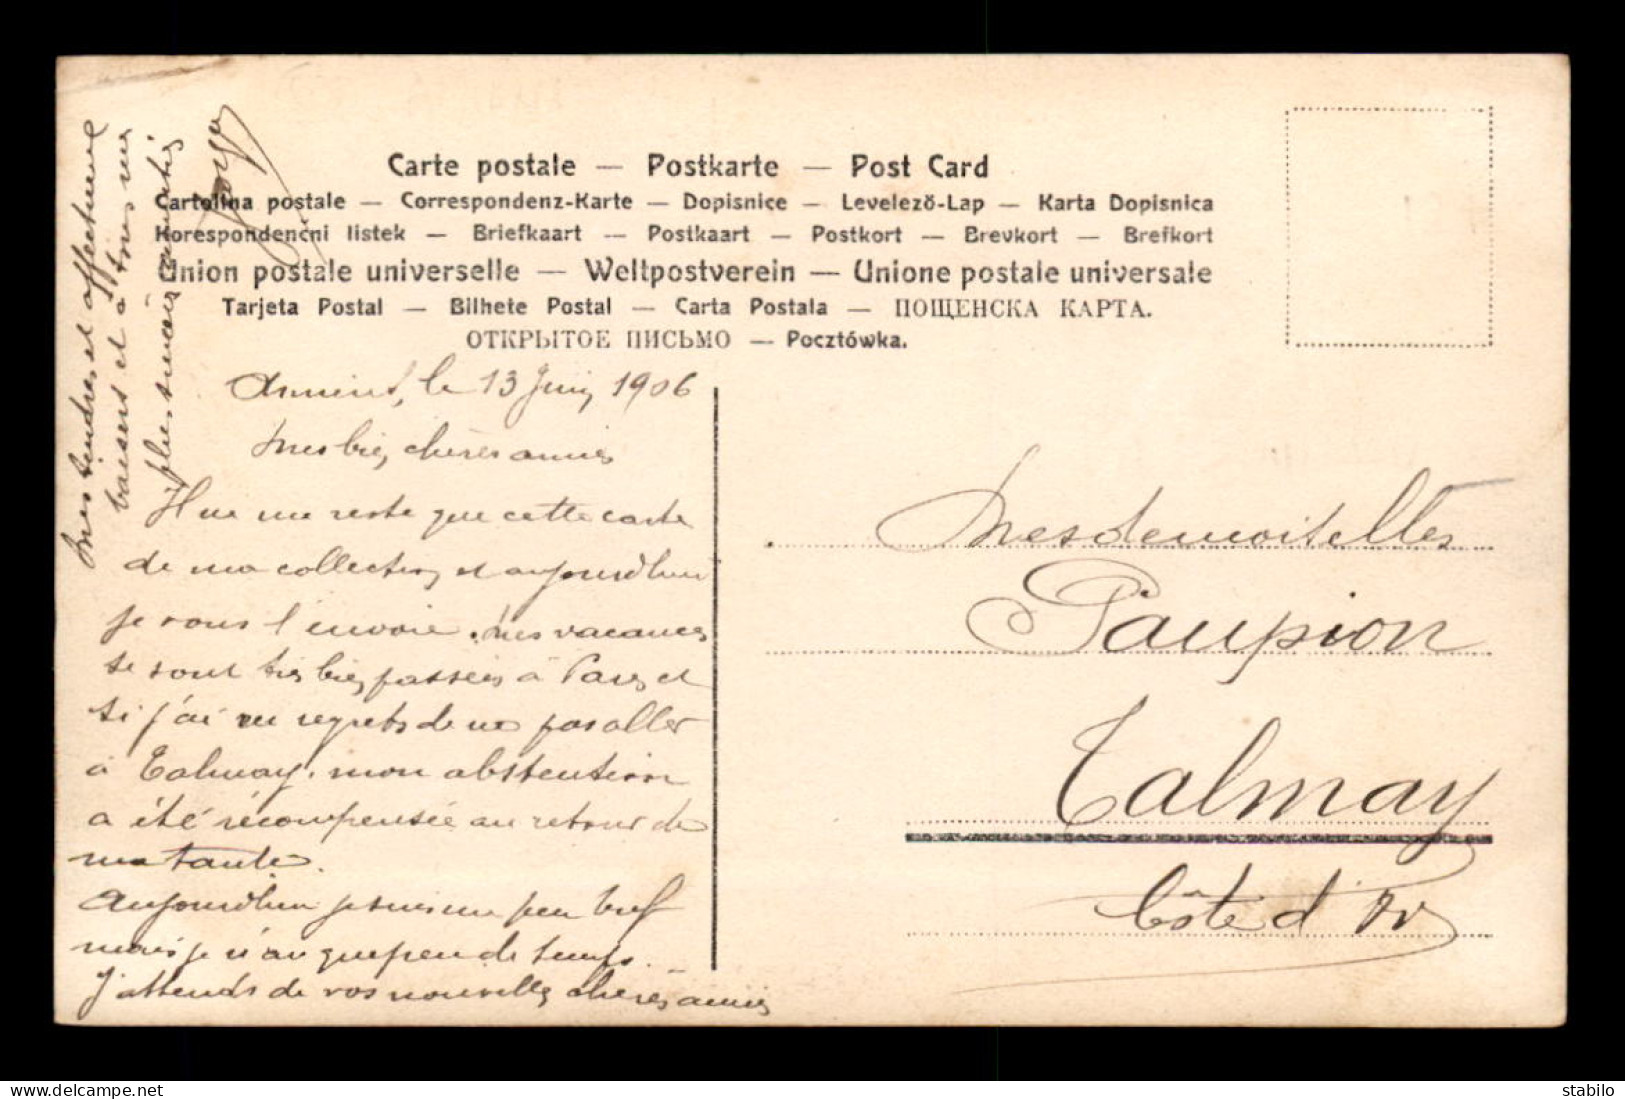 Carte postale — Postkarte — Post Card
Cartolina postale — Correspondenz-Karte — Dopisnice — Levelező-Lap — Karta Dopisnica
Korespondenčni listek — Briefkaart — Postkaart — Postkort — Brevkort — Brefkort
Union postale universelle — Weltpostverein — Unione postale universale
Tarjeta Postal — Bilhete Postal — Carta Postala — ПОЩЕНСКА КАРТА.
ОТКРЫТОЕ ПИСЬМО — Pocztówka.
le 13 Juin 1906
Mes bien chères amies
Il ne me reste que cette carte
de ma collection et aujourd'hui
je vous l'envoie. Mes vacances
se sont très bien passées à Paris et
si j'ai eu regrets de ne pas aller
à Talmay, mon abstention
a été récompensée au retour de
ma tante.
Aujourd'hui je suis un peu bref
mais je n'ai que peu de temps.
J'attends de vos nouvelles chères amies
Mes tendres et affectueux
baisers et à tous mes
plus sincères amitiés
Mesdemoiselles
Paupion
Talmay
Côte d'Or
delcampe.net
martinic
stabilo